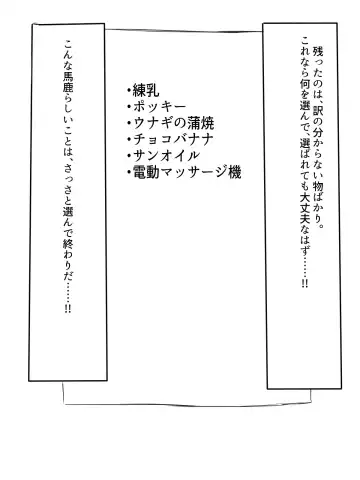 残ったのは、訳の分からない物ばかり。
これなら何を選んで、選ばれても大丈夫なはず……!!
・練乳
・ポッキー
・ウナギの蒲焼
・チョコバナナ
・サンオイル
・電動マッサージ機
こんな馬鹿らしいことは、さっさと選んで終わりだ……!!